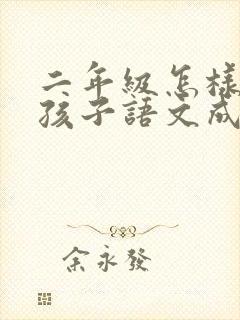 二年級怎樣
孩子語文成
余永發